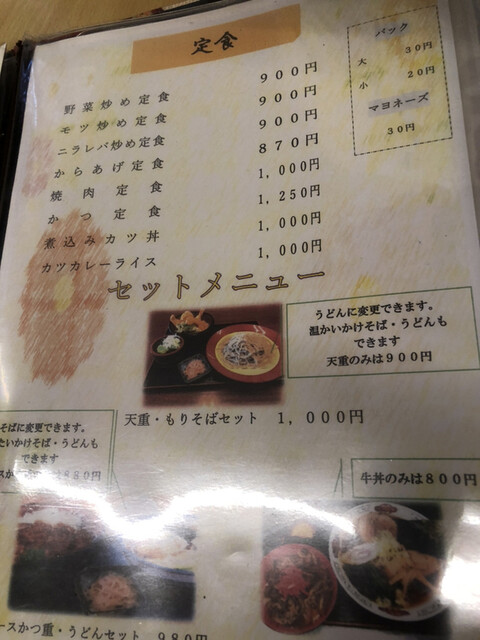 定食
野菜炒め定食 900円
モツ炒め定食 900円
ニラレバ炒め定食 900円
からあげ定食 870円
焼肉定食 1,000円
かつ定食 1,250円
煮込みカツ丼 1,000円
カツカレーライス 1,000円
パック
大 30円
小 20円
マヨネーズ
30円
セットメニュー
うどんに変更できます。
温かいかけそば・うどんも
できます
天重のみは900円
天重・もりそばセット 1,000円
そばに変更できます。
たいかけそば・うどんも
できます
スか は880円
牛丼のみは800円
ースかつ重・うどんセット 980円